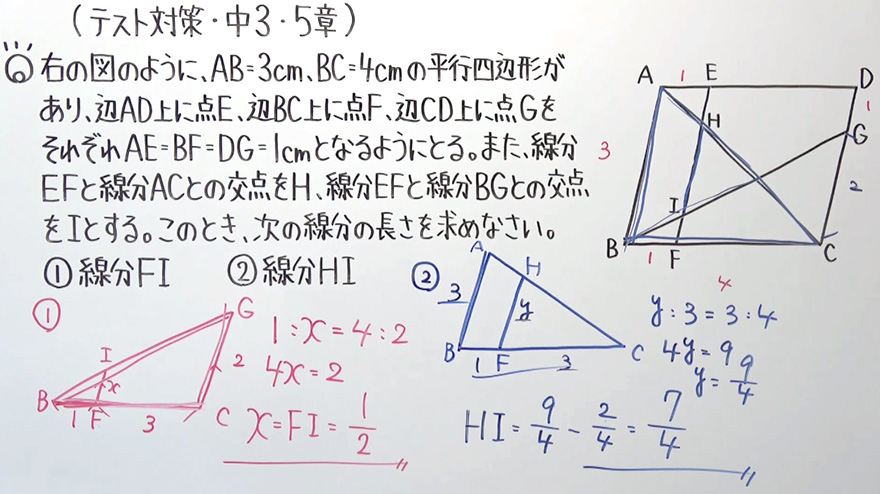 (テスト対策・中3・5章)
⑥ 右の図のように、AB=3cm、BC=4cmの平行四辺形が
あり、辺AD上に点E、辺BC上に点F、辺CD上に点Gを
それぞれAE=BF=DG=1cmとなるようにとる。また、線分
EFと線分ACとの交点をH、線分EFと線分BGとの交点
をIとする。このとき、次の線分の長さを求めなさい。
① 線分FI ② 線分HI
A 1 E D
1
H G
3
2
I
B 1 F C
4
①
G
I x 2
B 1 F 3 C
1:x=4:2
4x=2
x=FI=1/2
②
A
H
3 y
B 1 F 3 C
y:3=3:4
4y=9
y=9/4
HI=9/4-2/4=7/4